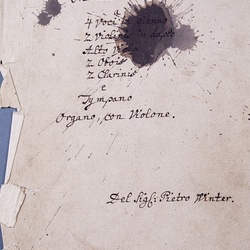 a
4 Voci in
2 Violini
Alto Viola
2 Oboe
2 Clarini
e
Tympano
Organo, con Violone.
Del Sigl: Pietro Winter.